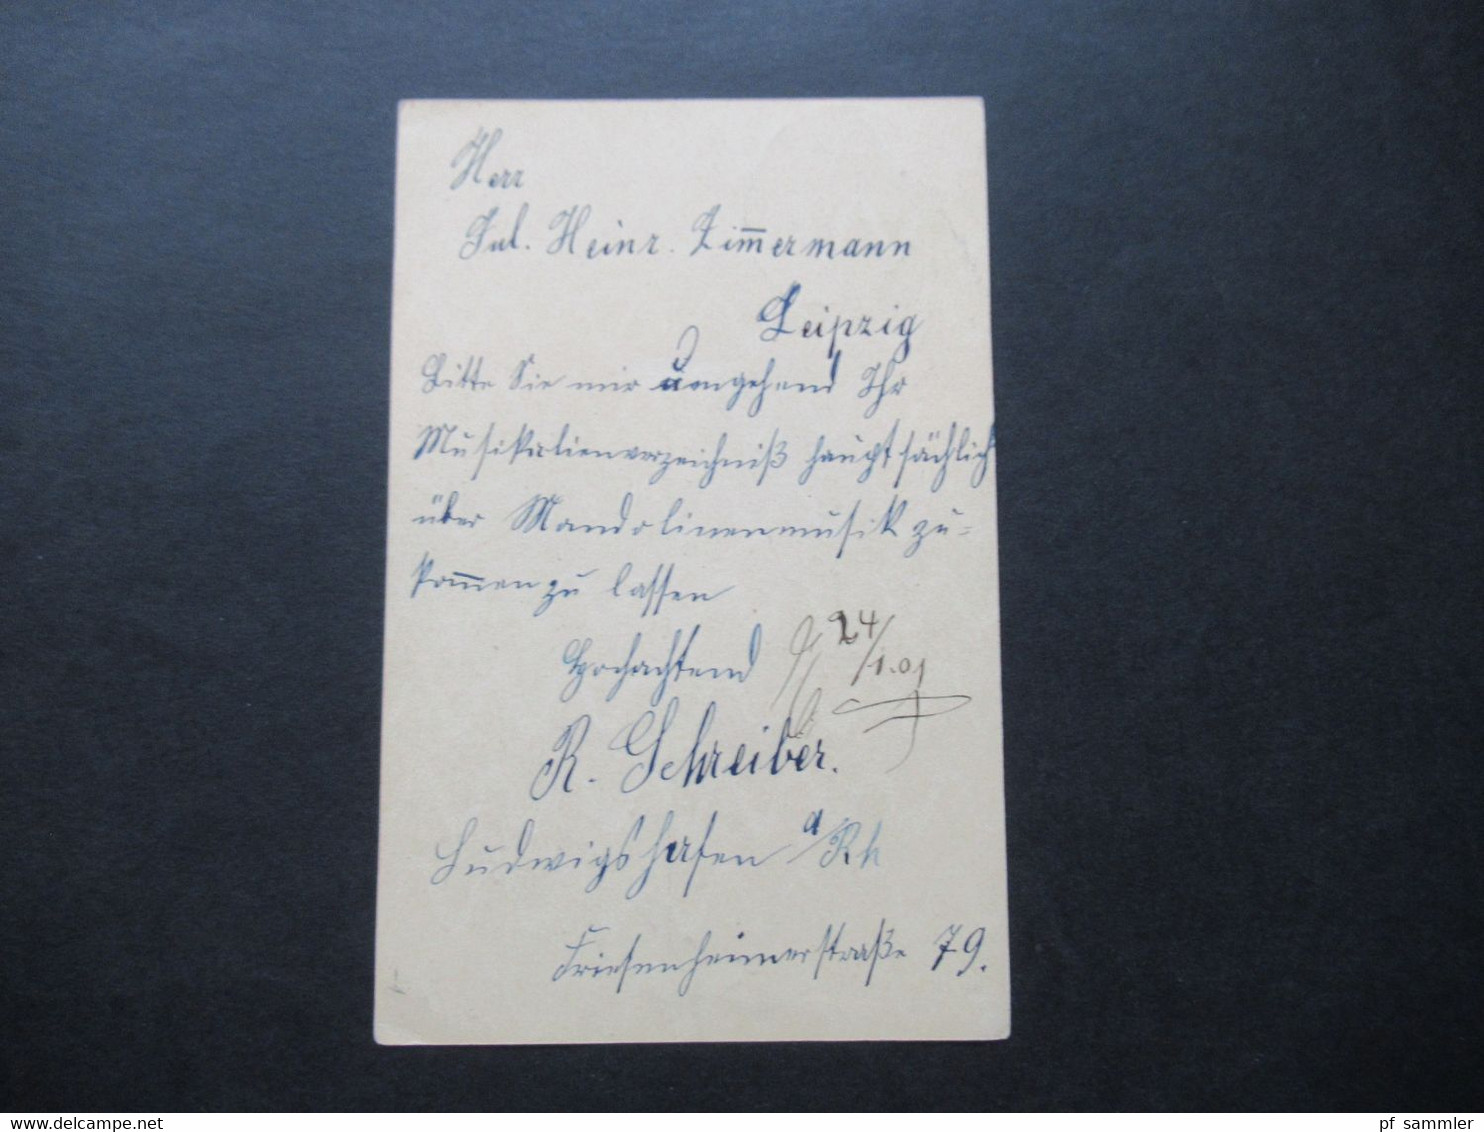 Herr
Jul. Heinr. Zim̅ermann
Leipzig
Bitte Sie mir umgehend Ihr
Musikalienverzeichniß hauptsächlich
über Mandolinenmusik zu-
kom̅en zu lassen
Hochachtend
24/1.01
R. Schreiber.
Ludwigshafen a/Rh
Friesenheimerstraße 79.
www.delcampe.net
pf_sammler